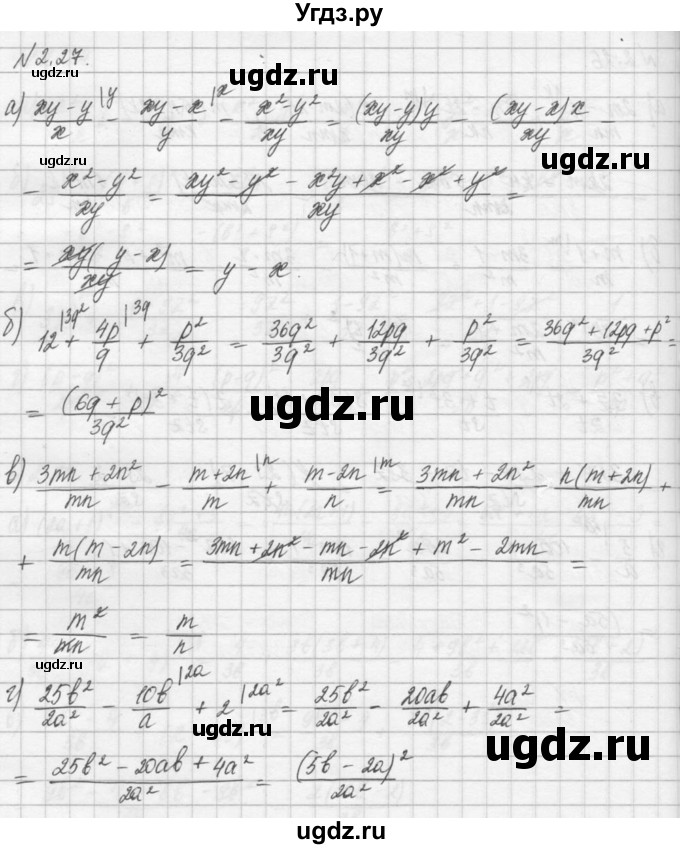 Угдз.ру
№ 2.27.
ugdz.ru
ugdz.ru
а) (xy − y)/x |y − (xy − x)/y |x − (x² − y²)/xy = (xy−y)y/xy − (xy−x)x/xy −
ugdz.ru
ugdz.ru
− (x² − y²)/xy = (xy² − y² − x²y + x² − x² + y²)/xy =
= xy(y − x)/xy = y − x.
ugdz.ru
б) 12 |3q² + 4p/q |3q + p²/3q² = 36q²/3q² + 12pq/3q² + p²/3q² = (36q² + 12pq + p²)/3q² =
ugdz.ru
= (6q + p)²/3q²
ugdz.ru
ugdz.ru
в) (3mn + 2n²)/mn − (m + 2n)/m |n + (m − 2n)/n |m = (3mn + 2n²)/mn − n(m + 2n)/mn +
+ m(m − 2n)/mn = (3mn + 2n² − mn − 2n² + m² − 2mn)/mn =
ugdz.ru
= m²/mn = m/n
ugdz.ru
ugdz.ru
г) 25b²/2a² − 10b/a |2a + 2 |2a² = 25b²/2a² − 20ab/2a² + 4a²/2a² =
ugdz.ru
= (25b² − 20ab + 4a²)/2a² = (5b − 2a)²/2a²
ugdz.ru
ugdz.ru